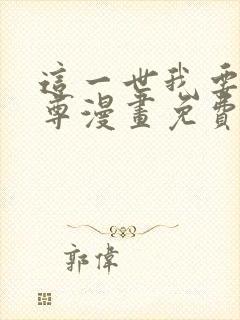 這一世我要
尊漫畫免費
郭偉